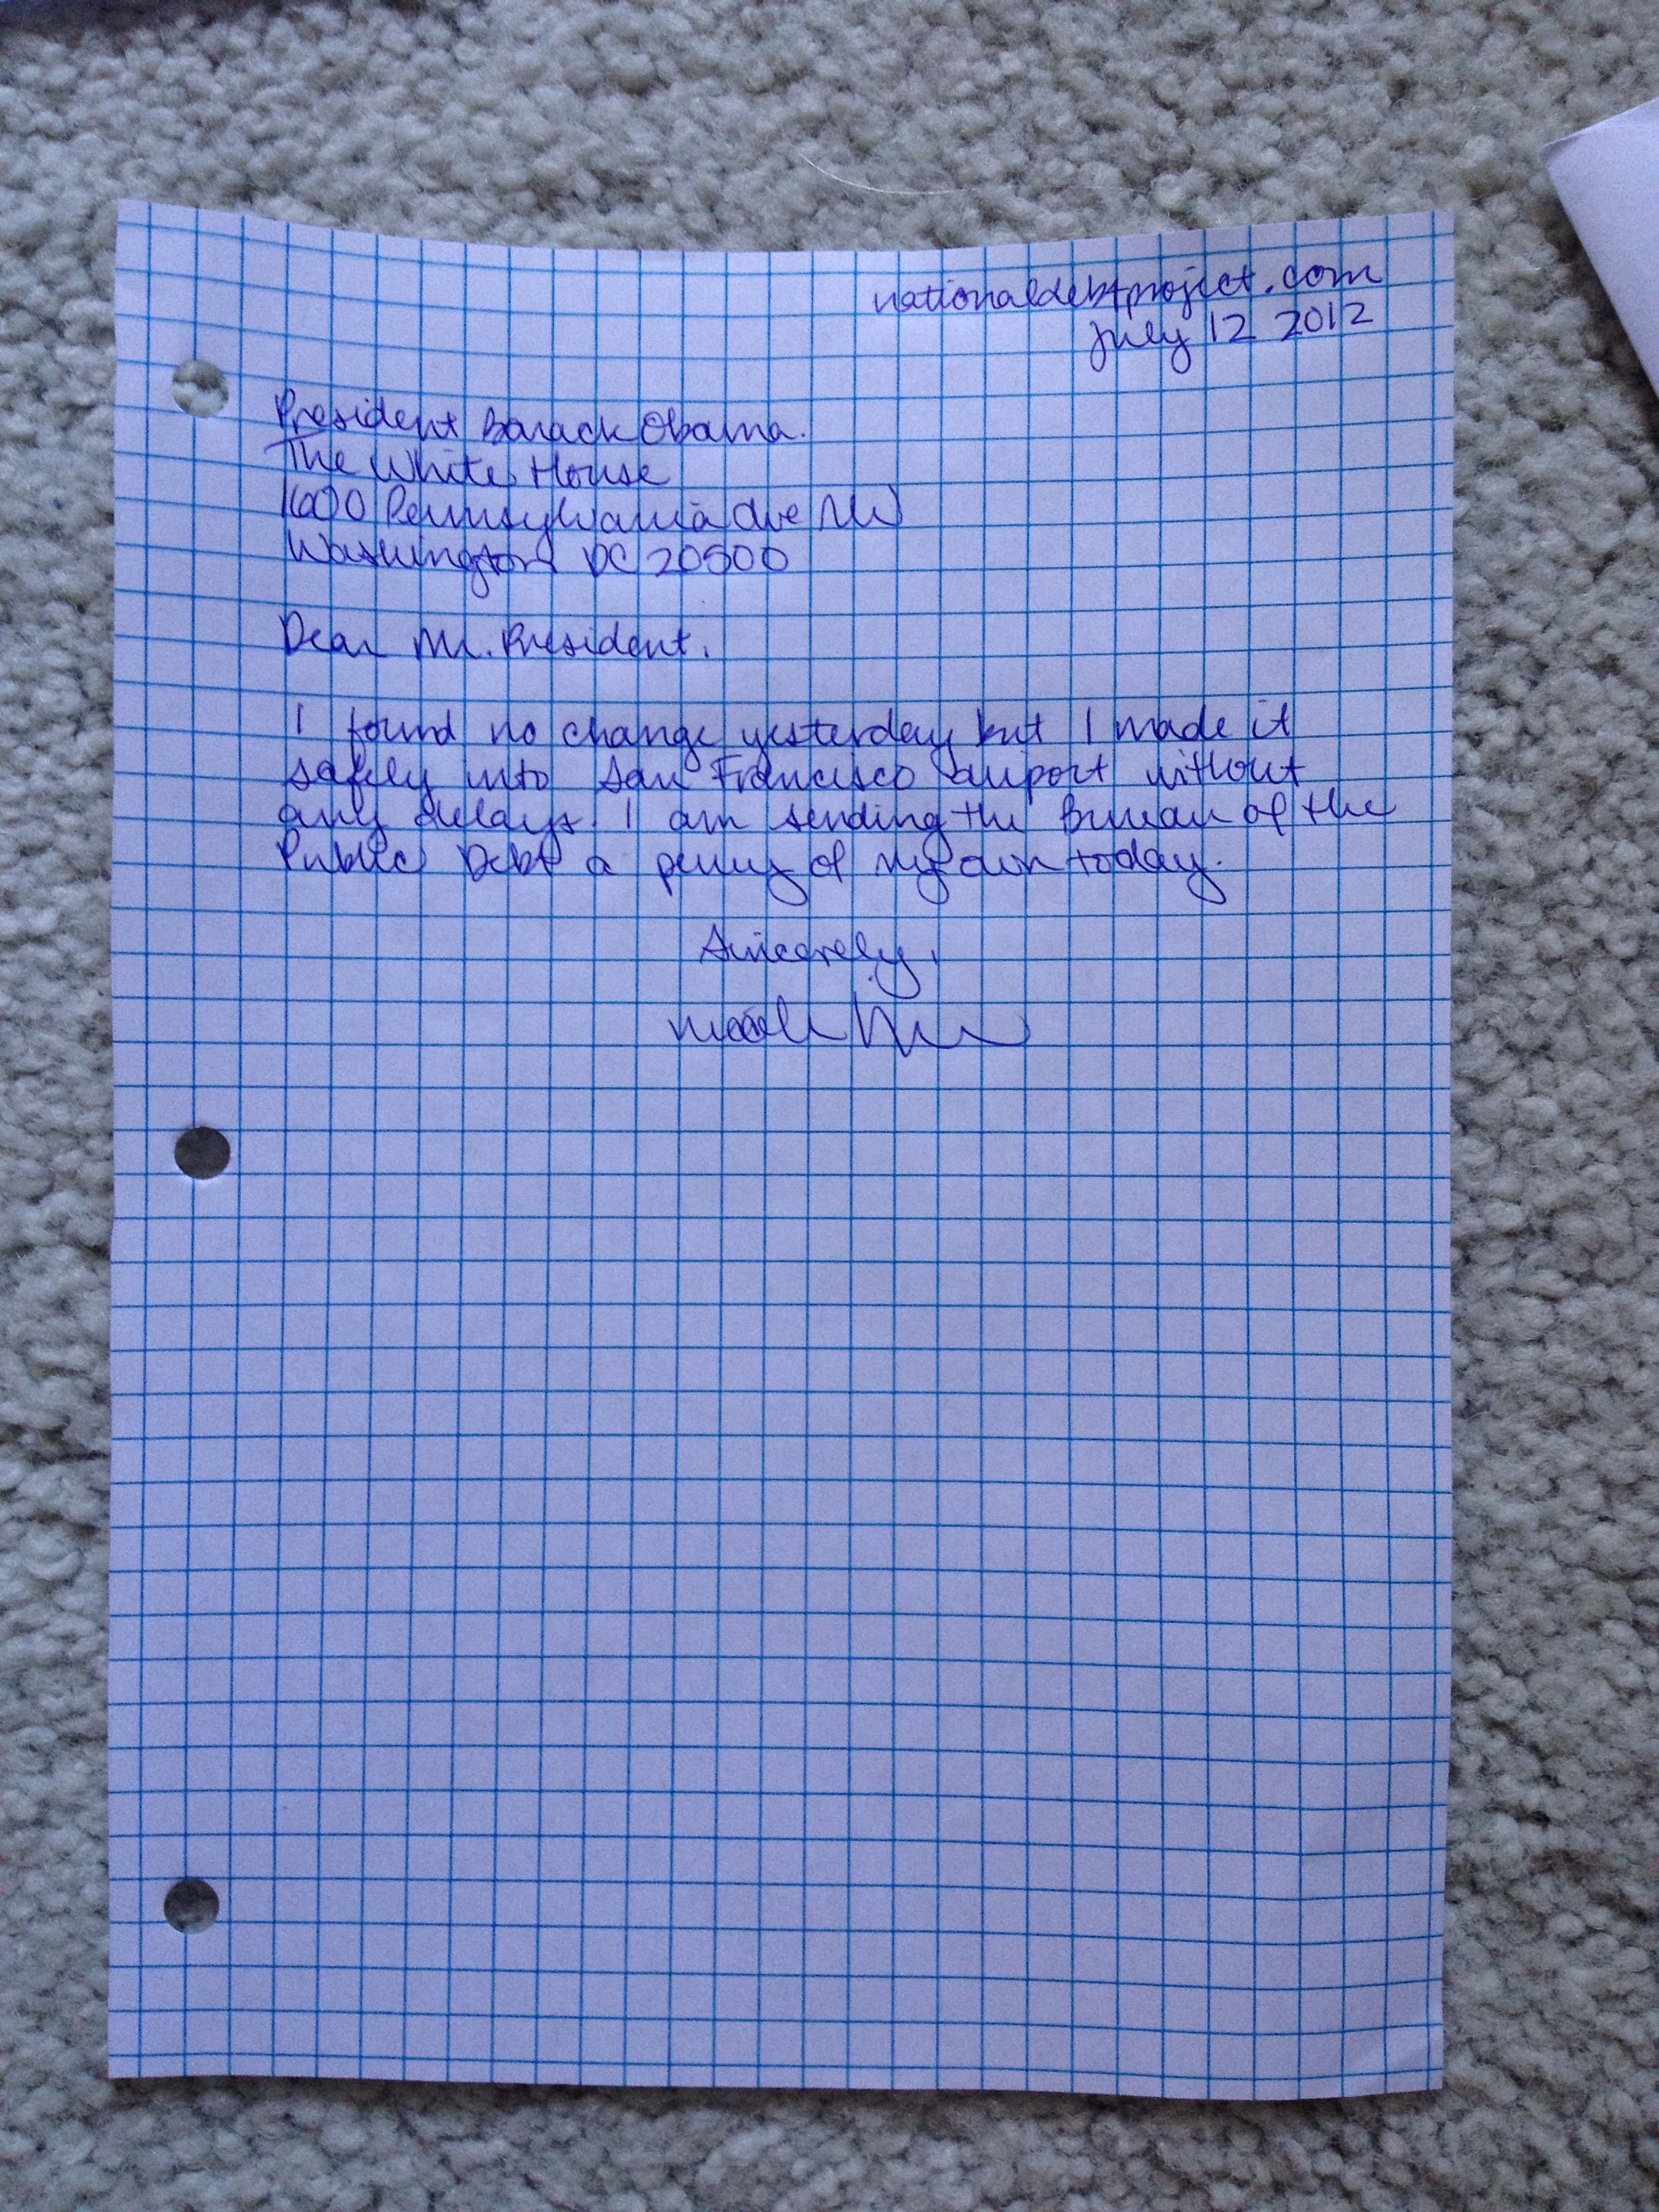 nationaldebtproject.com
July 12 2012
President Barack Obama.
The White House
1600 Pennsylvania Ave NW
Washington DC 20500
Dear Mr. President,
I found no change yesterday but I made it
safely into San Francisco airport without
any delays. I am sending the Bureau of the
Public Debt a penny of my own today.
Sincerely,